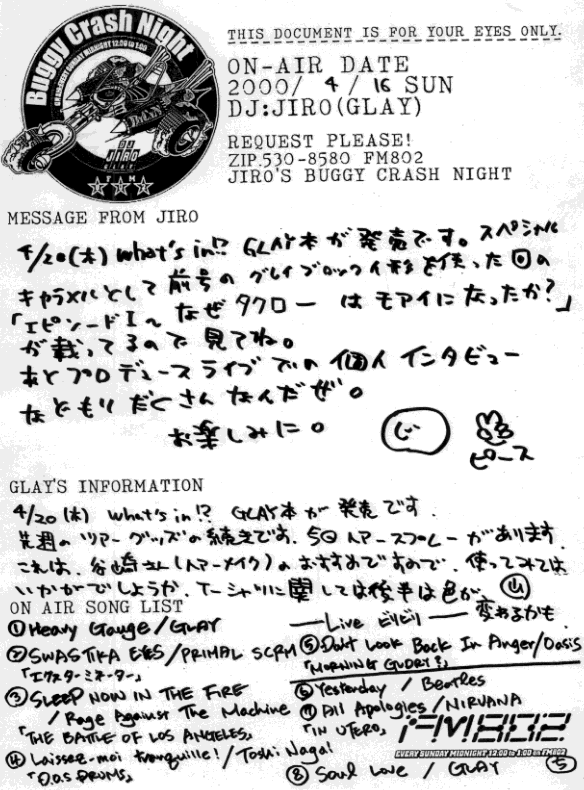 Buggy Crash Night
EVERY SUNDAY MIDNIGHT 12:00 to 1:00
DJ
JIRO
GLAY
THIS DOCUMENT IS FOR YOUR EYES ONLY.
ON-AIR DATE
2000/ 4 / 16 SUN
DJ:JIRO(GLAY)
REQUEST PLEASE!
ZIP.530-8580 FM802
JIRO'S BUGGY CRASH NIGHT
MESSAGE FROM JIRO
4/20(木) what's in!? GLAY本が発売です。スペシャル
キャラメルとして前号のグレイブロック人形を使った回の
「エピソードI〜なぜタクローはモアイになったか?」
が載ってるので見てね。
あとプロデュースライブでの個人インタビュー
なともりだくさんなんだぜ。
お楽しみに。 じ ピース
GLAY'S INFORMATION
4/20(木) what's in!? GLAY本が発売です.
先週のツアーグッズの続きです. 50 ヘアースプレーがあります
これは、谷崎さん(ヘアーメイク)のおすすめですので、使ってみては
いかがでしょうか. Tーシャツに関しては後半は色が、
変わるかも
ON AIR SONG LIST
① Heavy Gauge / GLAY
② SWASTIKA EYES / PRIMAL SCRM
「エクスターミネーター」
③ SLEEP NOW IN THE FIRE
/ Rage Against The Machine
「THE BATTLE OF LOS ANGELES」
④ Laissez-moi tranquille! / Toshi Nagai
「D.O.S DRUMS」
Live ビリビリ
⑤ Don't Look Back In Anger/Oasis
「MORNING GLORY?」
⑥ Yesterday / Beatles
⑦ All Apologies / NIRVANA
「IN UTERO」
FM802
EVERY SUNDAY MIDNIGHT 12:00 to 1:00 on FM802
⑧ Soul Love / GLAY